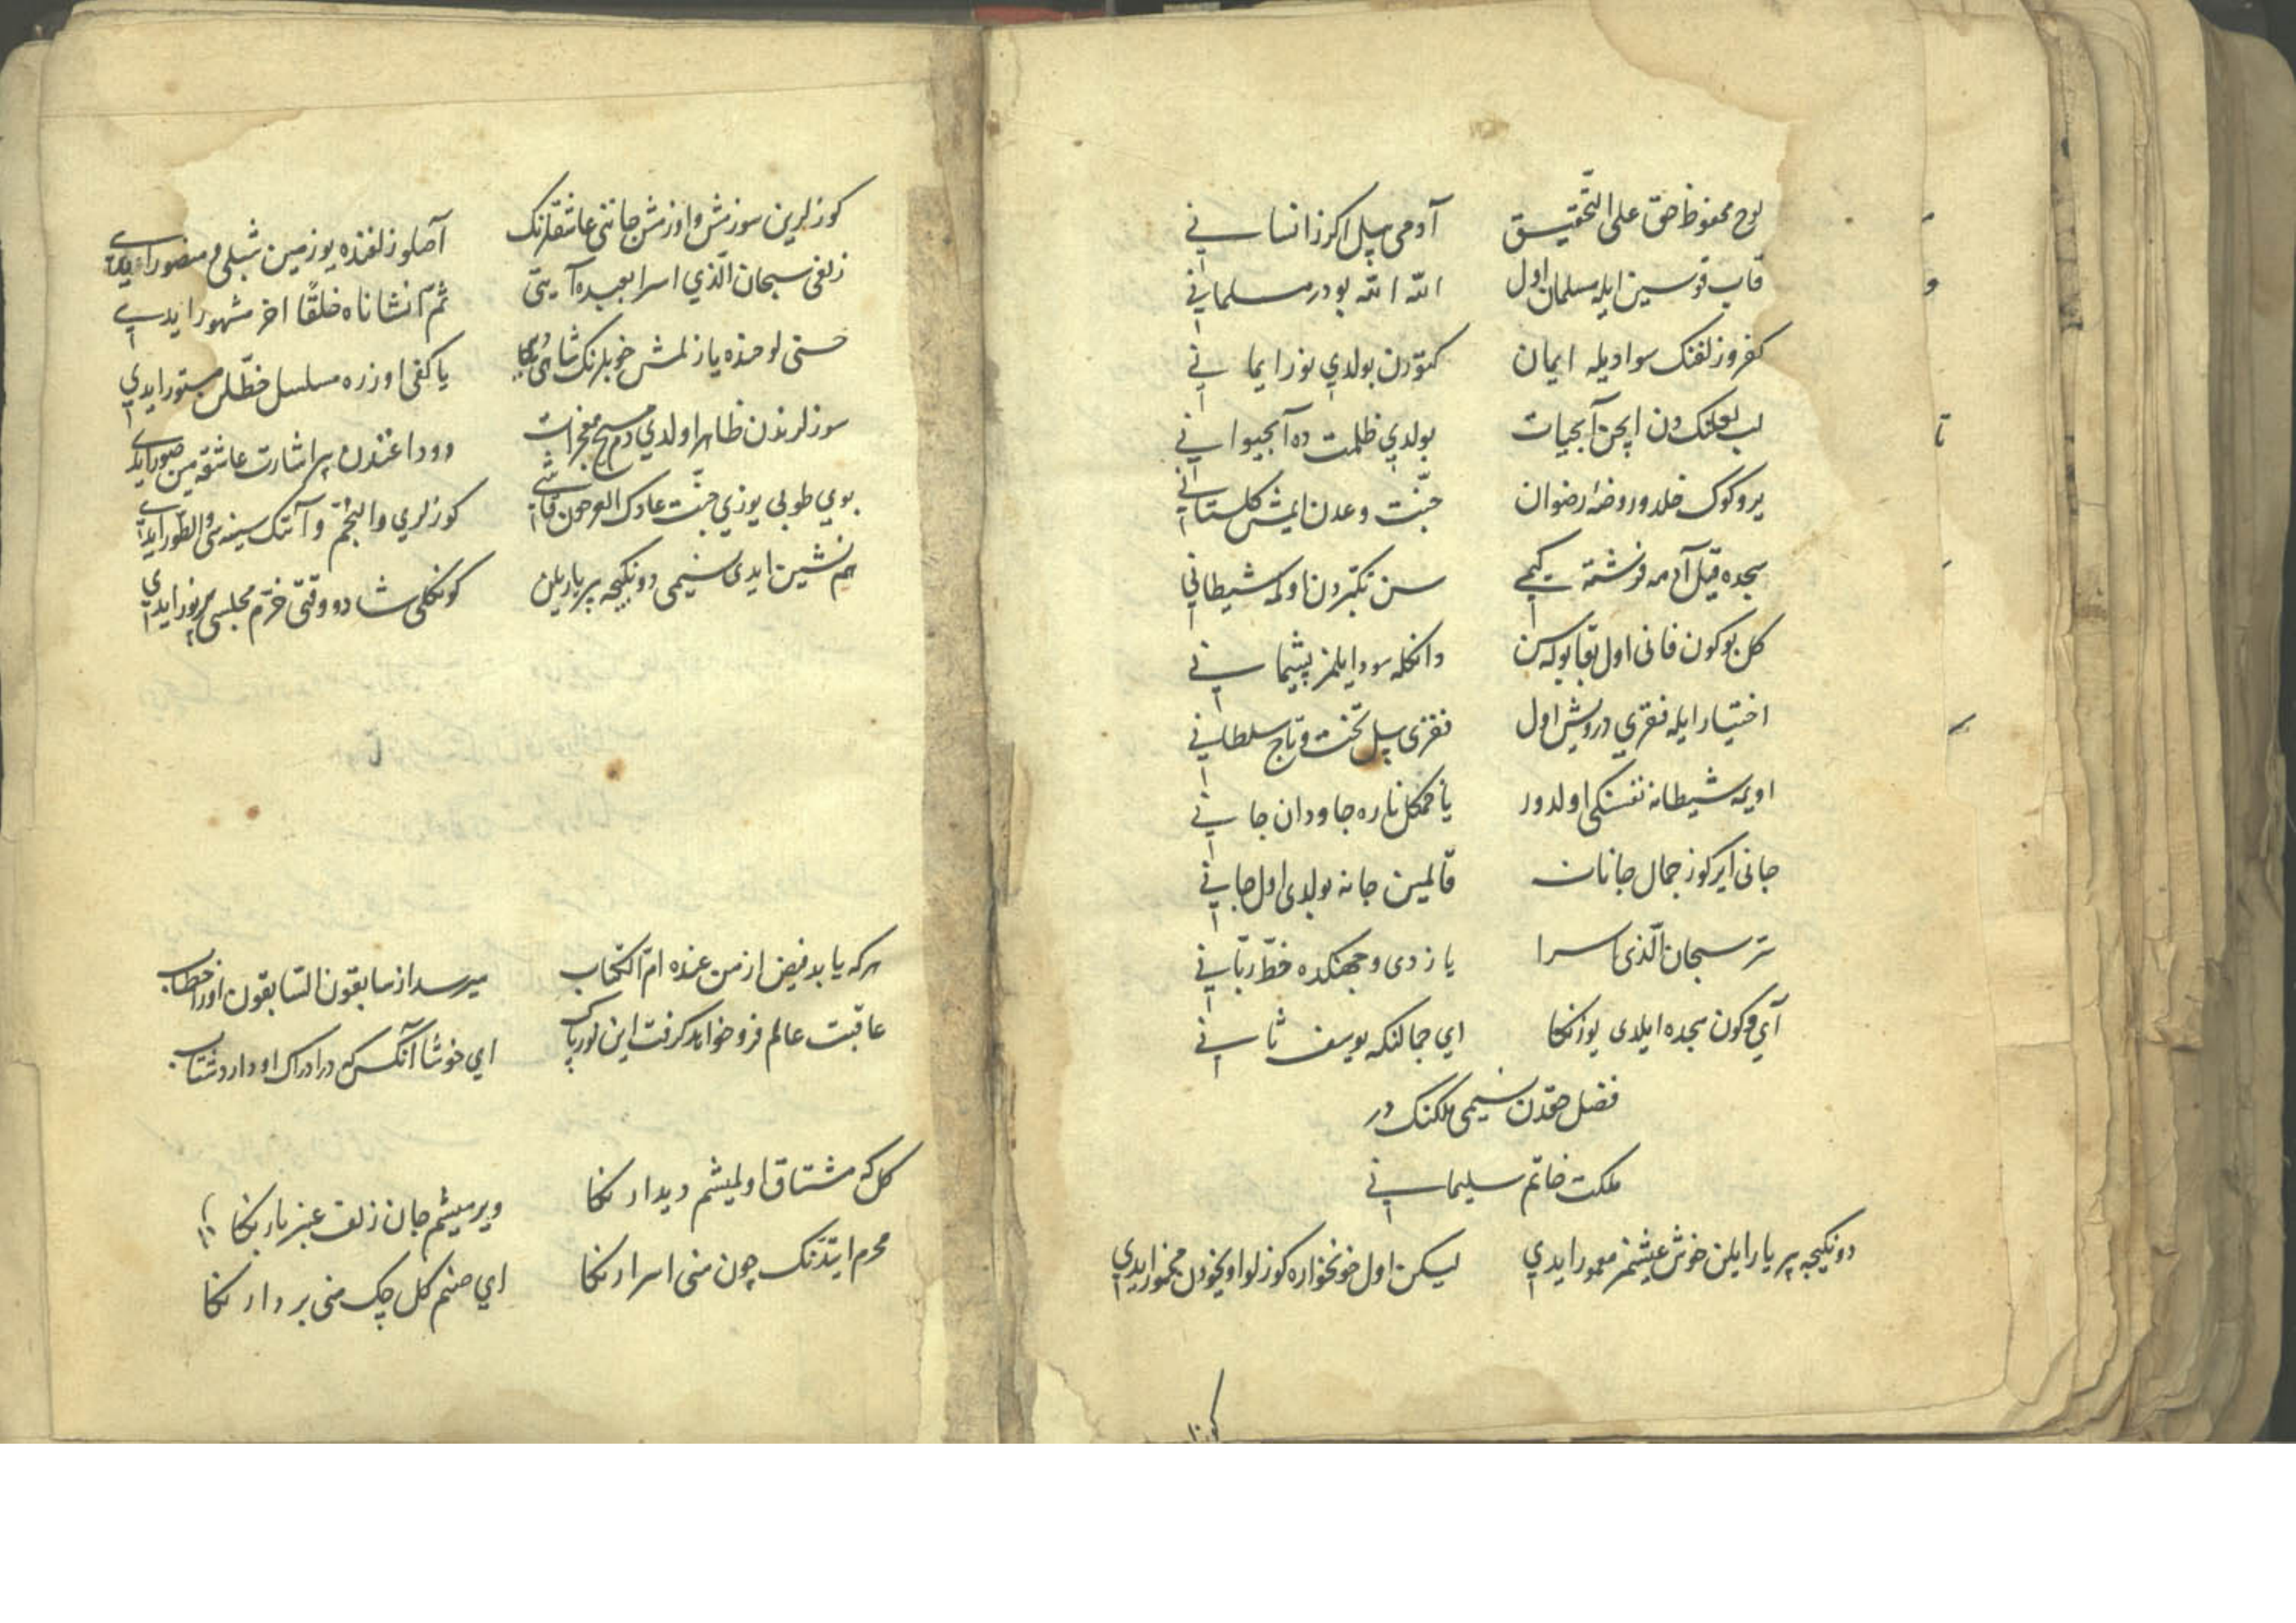 لوح محفوظ حق علی التّحقیق آدمی بیل اکر ز انسانی
قاب قوسین ایله مسلمان اول الله الله بودر مسلمانی
کفر و زلفنک سوادیله ایمان کمتودن بولدي نور ایمانی
لب لعلنک دن ایچن آبحیات بولدي ظلمت ده آبحیوانی
یر و کوک خلد و روضهٔ رضوان جنّت و عدن ایمش کلستانی
سجده قیل آدمه فرشته کیمي سن تکبّردن اولمه شیطانی
کل بو کون فانی اول بقا بوله سن دانکله سود ایلمز پشیمانی
اختیار ایله فقري درویش اول فقری بیل تخت و تاج سلطانی
اویمه شیطانه نفسنکی اولدور یاخمکل ناره جاودان جانی
جانی ایرکوز جمال جانان قالمین جانه بولدی اول جانی
سرّ سبحان الّذی اسرا یازدی وجهنکده خطّ ربّانی
آي و کون سجده ایلدی یوزنکا اي جمالنکه یوسف ثانی
فضل حقدن نسیمی ملکنک در
ملکت خاتم سلیمانی
دونکیجه بر یار ایلن خوش عیشمز معمور ایدي لیکن اول خونخواره کوزلو اویخودن مخمور ایدي
کوز
کوزلرین سوزمش و اوزمش جاننی عاشقلرنک آصلو زلفنده یوز مین شبلی و منصور ایدي
زلفی سبحان الّذي اسرا بعبده آیتی ثمّ انشاناه خلقًا اخر مشهور ایدي
حسنی لوحنده یازلمش خوبلرنک شاهی یاکفی اوزره مسلسل خطّلر مستور ایدي
سوزلرندن ظاهر اولدي دم مسیح معجزات دوداغندن بر اشارت عاشقه مین صور ایدي
بوي طوبی یوزي جنّت عادک العرجون قاشی کوزلري والنّجم و آنک سینه سی والطّور ایدي
همنشین ایدی نسیمی دونکیجه بر یاریلن کونکلی شاد و وقتی خرّم مجلسی پرنور ایدي
هرکه یابد فیض از من عنده امّ الکتاب میرسد از سابقون السّابقون اورا خطاب
عاقبت عالم فرو خواهد کرفت این نور پاک اي خوشا آنکس که در ادراک او دارد شتاب
کل که مشتاق اولمیشم دیدارنکا ویرمیشم جان زلف عنبربارنکا
محرم ایتدنک چون منی اسرارنکا اي صنم کل چک منی بر دارنکا